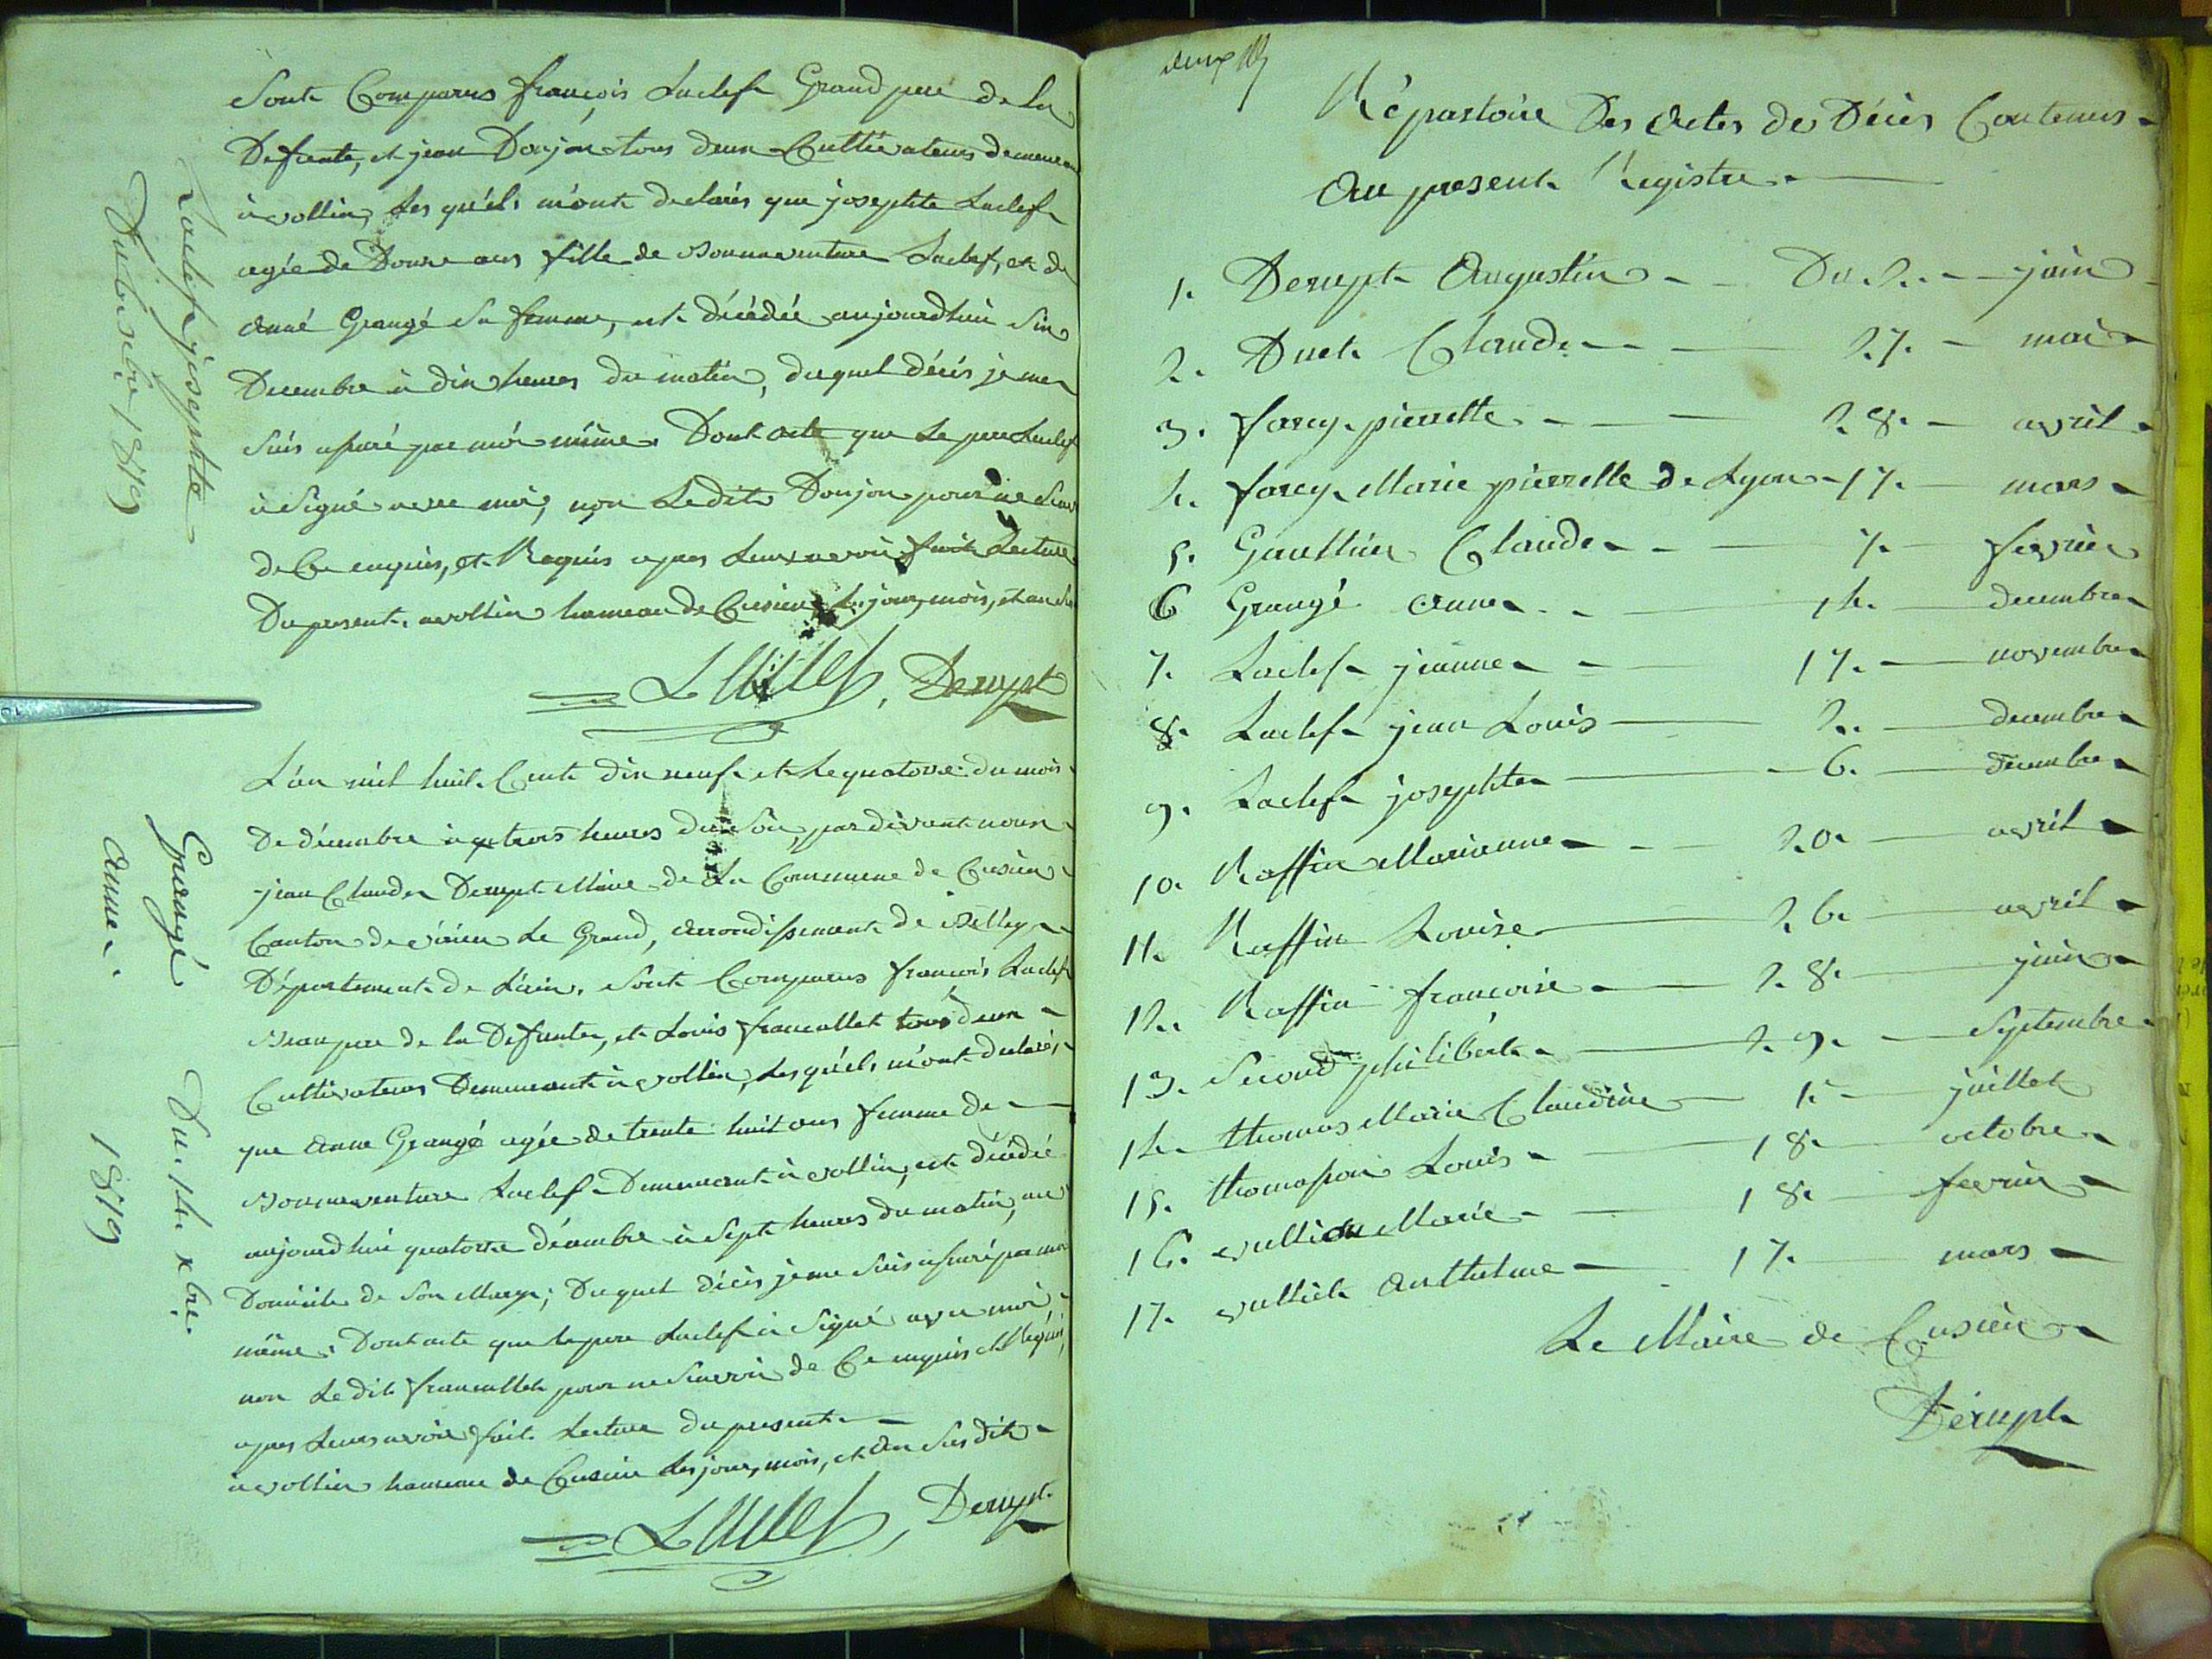 Sont Comparus françois Laclef Grand pere de la
Defunte, et jean Donjon tous deux Cultivateurs demeurant
à vollin, les quéls m'ont declarés que josephte Laclef
agée de Douze ans fille de Bonnaventure Laclef, et de
anne Grangé sa femme, est décédée aujourdhui Six
Decembre à dix heures du matin, duquel décès je me
suis assuré par moi même. Dont acte que le pere Laclef
à Signé avec moi, non Ledit Donjon pour ne savoir
de Ce enquis, et Requis apres leurs avoir fait Lecture
Du present. avollin hameau de Cusieu les jour, mois, et an
Laclef, Derupt
Laclef josephte
Du 6 xbre 1819
L'an mil huit Cent dix neuf et le quatorze du mois
De décembre à trois heures du Soir, pardevant nous
jean Claude Derupt Maire de La Commune de Cusieu
Canton de virieu le Grand, arrondissement de Belley
Département de L'ain. Sont Comparus françois Laclef
Beau pere de la Defunte, et Louis francallet tous deux
Cultivateurs Demeurant à vollin, Lesquéls m'ont declarés
que anne Grangé agée de trente huit ans femme de
Bonnaventure Laclef Demeurant à vollin, est décédée
aujourdhui quatorze décembre à Sept heures du matin, au
Domicile de Son Mary; Duquel décès je me Suis assuré par moi
même. Dont acte que le pere Laclef à Signé avec moi,
non Ledit francallet pour ne Savoir de Ce enquis et Requis,
apres leurs avoir fait Lecture du present
à vollin hameau de Cusieu les jour, mois, et an Susdit
Laclef, Derupt
Grangé
anne.
Du 14 xbre
1819
Répertoire Des Actes de Décès Contenus
Au present Registre
1. Derupt Augustin Du 2. juin
2. Duet Claude 27. mai
3. farcy pierrette 28. avril
4. farcy Marie pierrette de Lyon 17. mars
5. Gaulthier Claude 7. fevrier
6 Grangé anne 14. decembre
7. Laclef jeanne 17. novembre
8. Laclef jean Louis 2. decembre
9. Laclef josephte 6. décembre
10. Raffin Marianne 20. avril
11. Raffin Louise 26. avril
12. Raffin françoise 28. juin
13. Second philibert 29. Septembre
14. thomas Marie Claudine 1. juillet
15. thomasson Louis 18. octobre
16. Marie 18. fevrier
17. Anthelme 17. mars
Le Maire de Cusieu
Dérupt